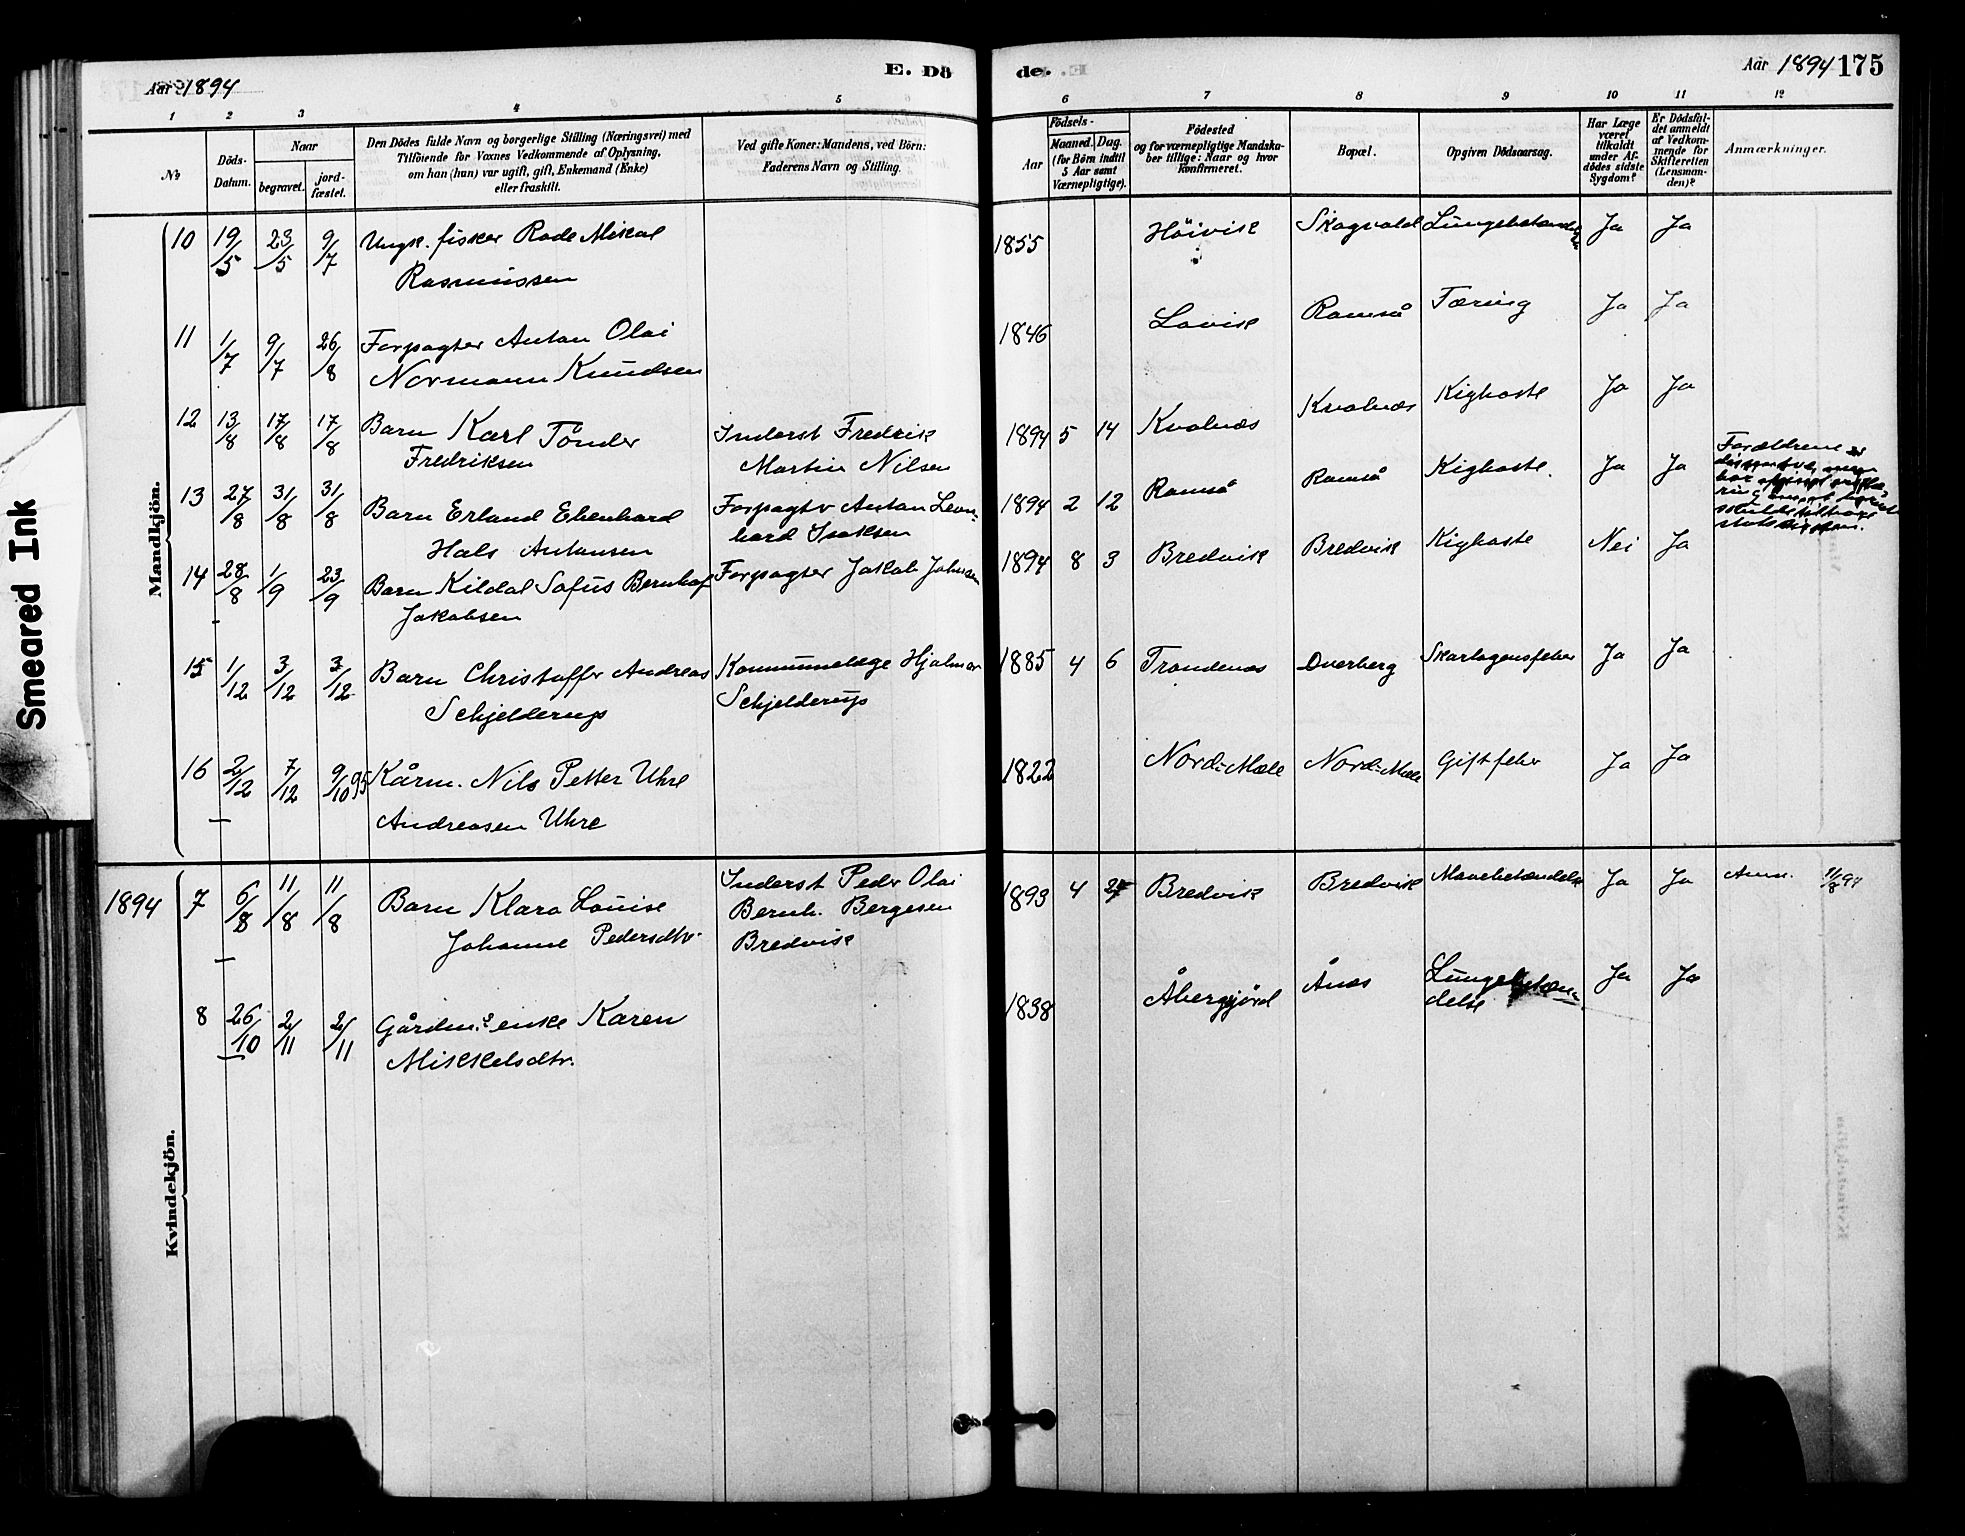 Smeared Ink
Aar 1894
E. Dö
de.
Aar 1894 175
1 2 3 4 5 6 7 8 9 10 11 12
No
Döds-Datum.
Naar
begravet.
jord-fæstet.
Den Dödes fulde Navn og borgerlige Stilling (Næringsvei) med
Tilföiende for Voxnes Vedkommende af Oplysning,
om han (hun) var ugift, gift, Enkemand (Enke)
eller fraskilt.
Ved gifte Koner: Mandens, ved Börn:
Faderens Navn og Stilling.
Födsels-
Aar
Maaned. Dag.
(for Börn indtil
5 Aar samt
Værnepligtige).
Födested
og for værnepligtige Mandska-
ber tillige: Naar og hvor
konfirmeret.
Bopæl.
Opgiven Dödsaarsag.
Har Læge
været
tilkaldt
under Af-
dödes sidste
Sygdom?
Er Dödsfal-
det anmeldt
af Vedkom-
mende for
Skifteretten
(Lensman-
den)?
Anmærkninger.
Mandkjön.
10 19/5 23/5 9/7 Ungk. fisker Rade Mikal
Rasmussen
1855 Höivik Skogvold Lungebetændelse Ja Ja
11 1/7 9/7 26/8 Forpagter Anton Olai
Normann Knudsen
1846 Lovik Ramså Tæring Ja Ja
12 13/8 17/8 17/8 Barn Karl Tönder
Fredriksen
Inderst Fredrik
Martin Nilsen
1894 5 14 Kvalnæs Kvalnæs Kighoste Ja Ja
13 27/8 31/8 31/8 Barn Erland Ebenhard
Hals Antonsen
Forpagtr Anton Leon-
hard Isaksen
1894 2 12 Ramså Ramså Kighoste. Ja Ja
Forældrene
14 28/8 1/9 23/9 Barn Kildal Sofus Bernhof
Jakobsen
Forpagter Jakob Johnsen
1894 8 3 Bredvik Bredvik Kighoste Nei Ja
15 1/12 3/12 3/12 Barn Christoffer Andreas
Schjelderup
Kommunelæge Hjalmar
Schjelderup
1885 4 6 Trondenæs Dverberg Skarlagensfeber Ja Ja
16 2/12 7/12 9/10 95 Kårm. Nils Petter Uhre
Andreasen Uhre
1822 Nord-Mæle Nord-Mæle Giftfeber Ja Ja
Kvindekjön.
1894 7 6/8 11/8 11/8 Barn Klara Louise
Johanne Pedersdtr.
Inderst Peder Olai
Bernh. Bergesen
Bredvik
1893 4 27 Bredvik Bredvik Mavebetændelse Ja Ja Anm. 11/8 94
8 26/10 2/11 2/11 Gårdm.s enke Karen
Mikkelsdtr.
1838 Åbergjörd Ånes Lungebetæn-
delse Ja Ja